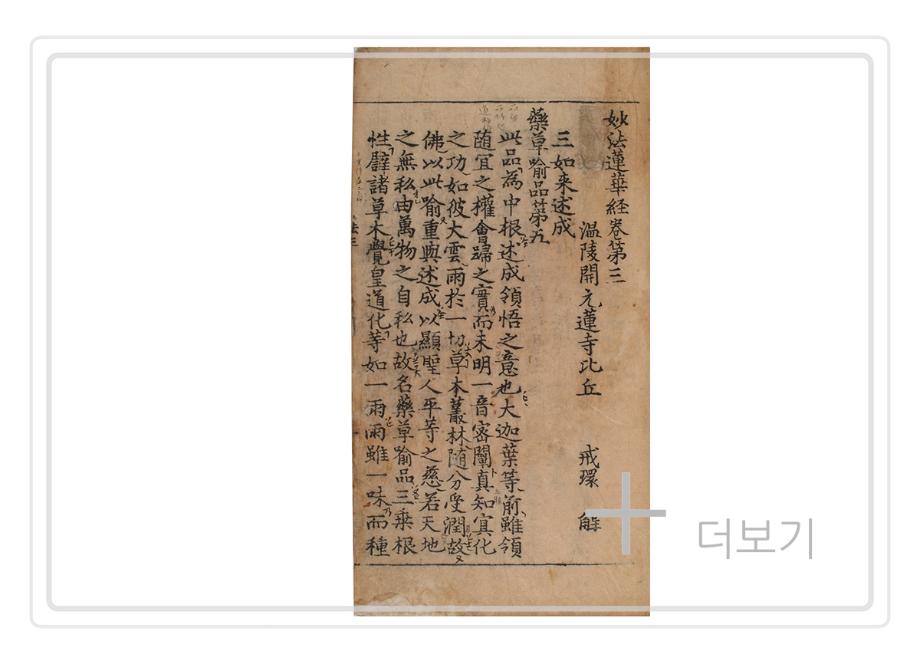 妙法蓮華経卷第三
溫陵開元蓮寺比丘 戒環 解
三如来述成
藥草喻品第五
此品為中根述成領悟之意也大迦葉等前雖領
随宜之權會歸之實而未明一音密闡真知宜化
之功如彼大雲雨於一切草木叢林随分受潤故
佛以此喻重與述成以顯聖人平等之慈若天地
之無私由萬物之自私也故名藥草喻品三乗根
性譬諸草木覺皇道化等如一雨雨雖一味而種
더보기